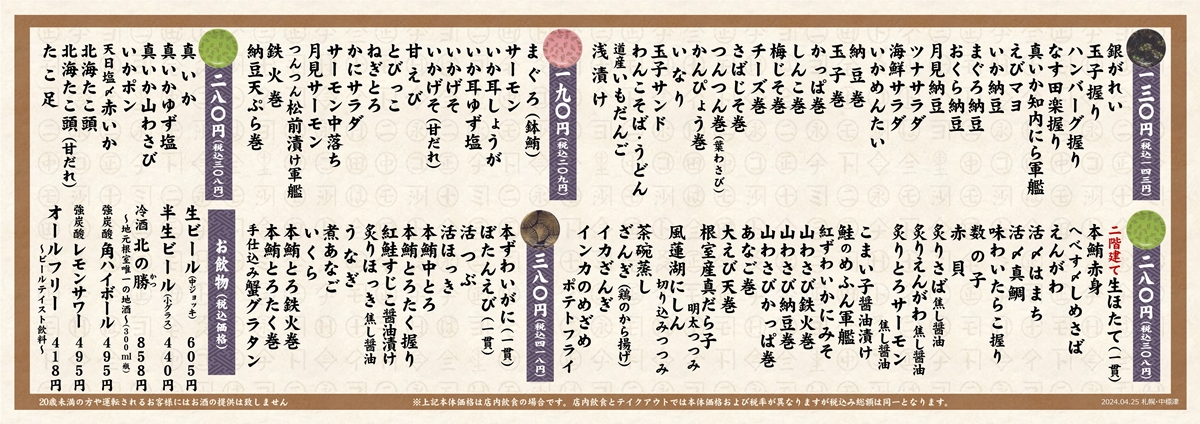 一三〇円(税込一四三円)
銀がれい
玉子握り
ハンバーグ握り
なす田楽握り
真いか知内にら軍艦
えびマヨ
いか納豆
まぐろ納豆
おくら納豆
月見納豆
ツナサラダ
海鮮サラダ
いかめんたい
納豆巻
玉子巻
かっぱ巻
しんこ巻
梅じそ巻
チーズ巻
さばじそ巻
つんつん巻(葉わさび)
かんぴょう巻
いなり
玉子サンド
わんこそば・うどん
道産いもだんご
浅漬け
一九〇円(税込二〇九円)
まぐろ(鉢鮪)
サーモン
いか耳しょうが
いか耳ゆず塩
いかげそ
いかげそ(甘だれ)
甘えび
とびっこ
ねぎとろ
かにサラダ
サーモン中落ち
月見サーモン
つんつん松前漬け軍艦
鉄火巻
納豆天ぷら巻
二八〇円(税込三〇八円)
真いか
真いかゆず塩
真いか山わさび
いかポン
天日塩〆赤いか
北海たこ頭
北海たこ頭(甘だれ)
たこ足
二八〇円(税込三〇八円)
二階建て生ほたて(一貫)
本鮪赤身
へべす〆しめさば
えんがわ
活〆はまち
活〆真鯛
味わいたらこ握り
数の子
赤貝
炙りさば焦し醤油
炙りえんがわ焦し醤油
炙りとろサーモン焦し醤油
こまい子醤油漬け
鮭のめふん軍艦
紅ずわいかにみそ
山わさび鉄火巻
山わさび納豆巻
山わさびかっぱ巻
あなご巻
大えび天巻
根室産真だら子明太つつみ
風蓮湖にしん切り込みつつみ
茶碗蒸し
ざんぎ(鶏のから揚げ)
イカざんぎ
インカのめざめポテトフライ
三八〇円(税込四一八円)
本ずわいがに(一貫)
ぼたんえび(一貫)
活つぶ
活ほっき
本鮪中とろ
本鮪とろたく握り
紅鮭すじこ醤油漬け
炙りほっき焦し醤油
うなぎ
煮あなご
いくら
本鮪とろ鉄火巻
本鮪とろたく巻
手仕込み蟹グラタン
お飲物(税込価格)
生ビール(中ジョッキ) 605円
半生ビール(小グラス) 440円
冷酒 北の勝 858円
かつ
~地元根室唯一の地酒~300ml瓶)
強炭酸 角ハイボール 495円
強炭酸 レモンサワー 495円
オールフリー 418円
~ビールテイスト飲料~
20歳未満の方や運転されるお客様にはお酒の提供は致しません
※上記本体価格は店内飲食の場合です。店内飲食とテイクアウトでは本体価格および税率が異なりますが税込み総額は同一となります。
2024.04.25 札幌・中標津